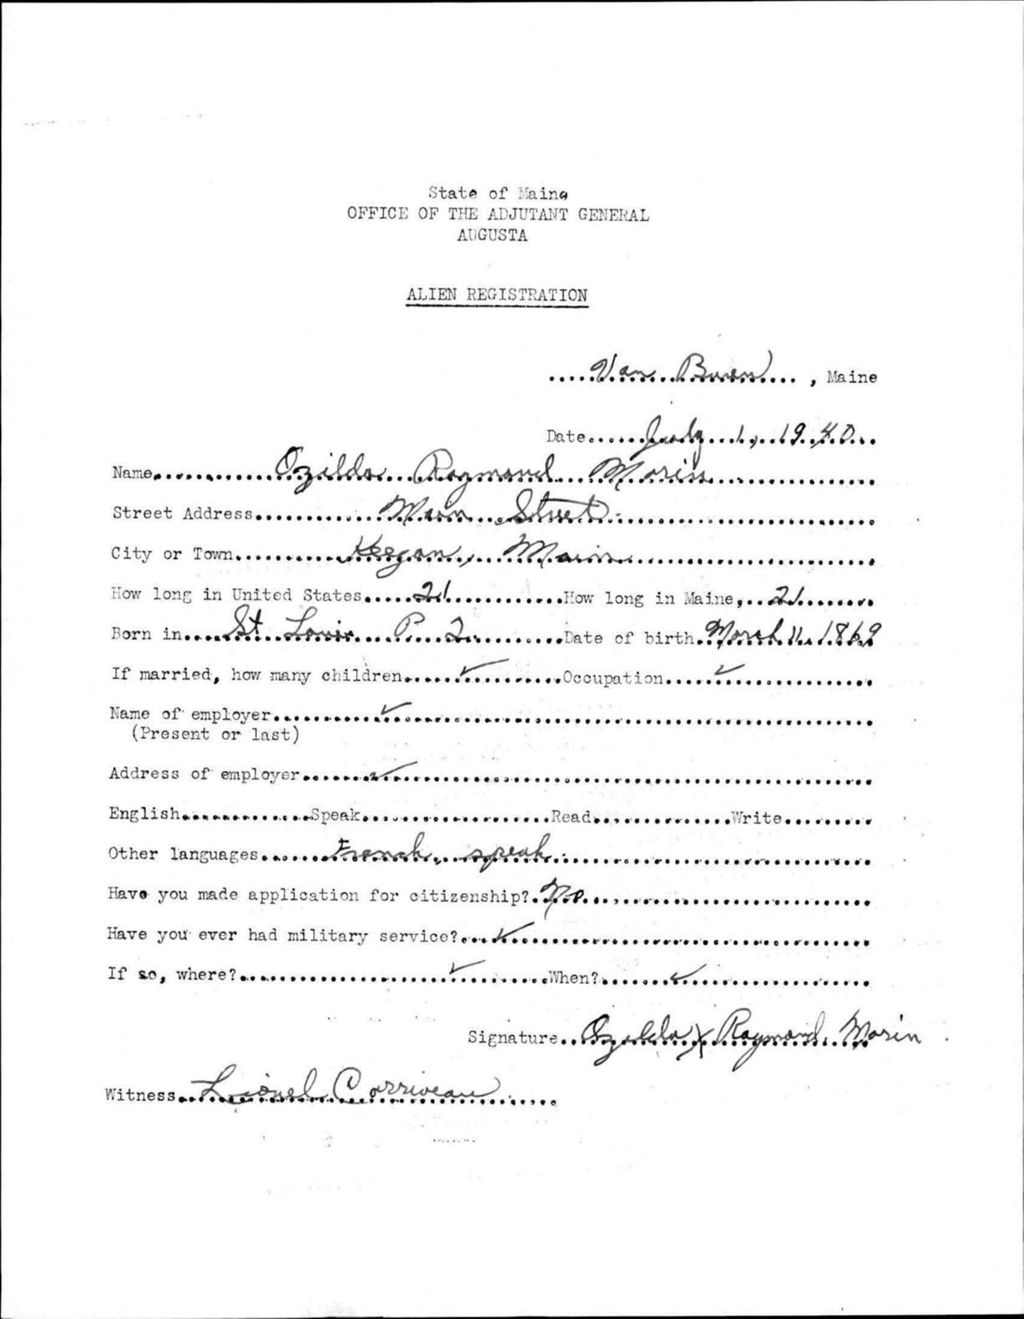 State of Maine
OFFICE OF THE ADJUTANT GENERAL
AUGUSTA
ALIEN REGISTRATION
Van Buren, Maine
Date July 1, 1940
Name Ozilda Raymond Morin
Street Address Main Street
City or Town Keegan, Maine
How long in United States 21 How long in Maine, 21
Born in St. Louis P. Q. Date of birth March 11, 1869
If married, how many children ✓ Occupation ✓
Name of employer ✓
(Present or last)
Address of employer ✓
English Speak Read Write
Other languages French, speak
Have you made application for citizenship? No
Have you ever had military service? ✓
If so, where? ✓ When? ✓
Signature Ozilda X Raymond Morin
Witness Lionel Corriveau